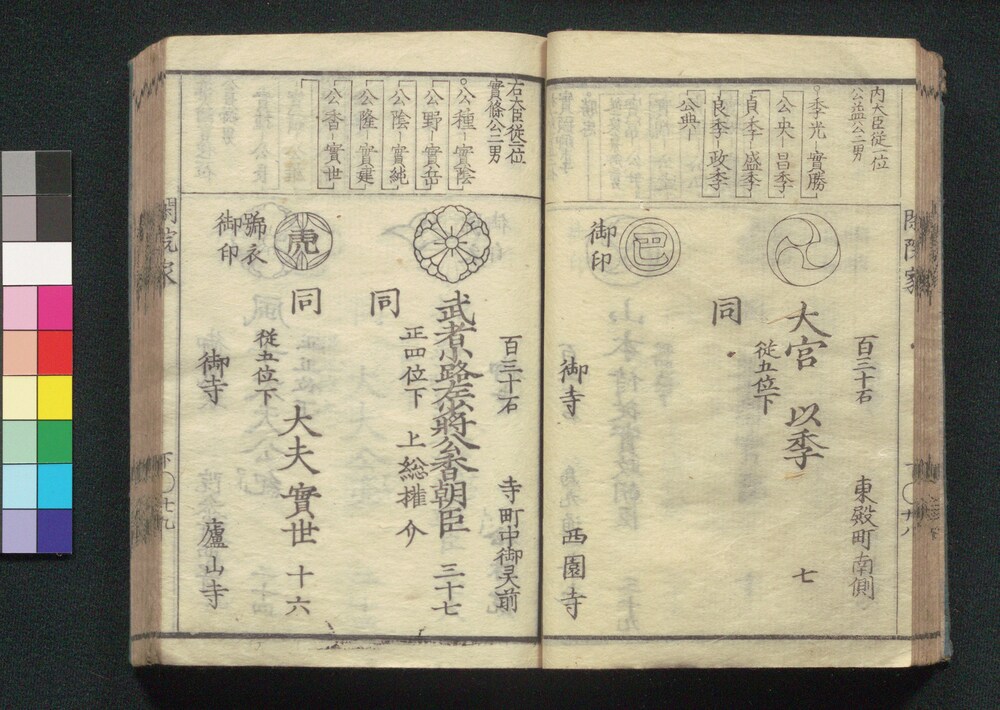 内大臣従一位
公益公二男
季光─實勝
公央─昌季
貞季─盛季
良季─政季
公典─
百三十石
東殿町南側
大宮 以季
従五位下
七
同
巴
御印
御寺
西園寺
右大臣従一位
實條公二男
公種─實陰
公野─實岳
公陰─實純
公隆─實建
公香─實世
百三十石
寺町中御灵前
武者小路左少將公香朝臣
三十七
正四位下
上総権介
同
同
虎
従五位下
大夫 實世
十六
號衣
御印
御寺
廬山寺
閑院家
下〇十九